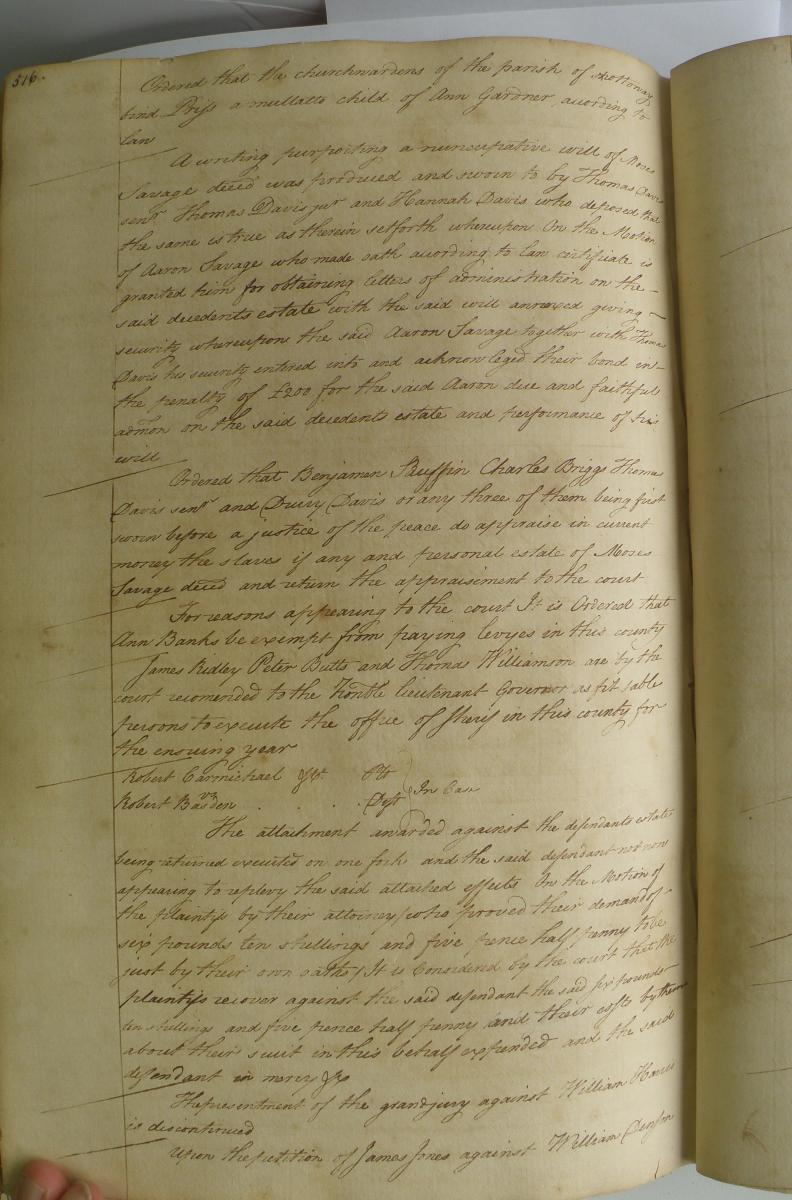 516.
Ordered that the churchwardens of the parish of Nottoway
bind Priss a mullatto child of Ann Gardner, acording to
law
A writing purporting a nuncupative will of Moses
Savage decd was produced and sworn to by Thomas Davis
senr Thomas Davis jur and Hannah Davis who deposed that
the same is true as therein setforth whereupon On the Motion
of Aaron Savage who made oath acording to Law certificate is
granted him for obtaining letters of administration on the -
said decedents estate with the said will annexed giving -
security whereupon the said Aaron Savage together with Thomas
Davis his security entered into and acknowleged their bond in -
the penalty of £200 for the said Aaron due and faithful
admon on the said decedents estate and performance of his
will
Ordered that Benjamen Ruffin Charles Briggs Thomas
Davis senr and Drury Davis or any three of them being first
sworn before a justice of the peace do appraise in current
money the slaves if any and personal estate of Moses
Savage decd and return the appraisement to the court
For reasons appearing to the court It is Ordered that
Ann Banks be exempt from paying levyes in this county
James Ridley Peter Butts and Thomas Williamson are by the
court recomended to the Honble lieutenant Governor as fit & able
persons to execute the office of Sherif in this county for
the ensuing year
Robert Carmichael &Ca. Plts
vs
Robert Barden . . . . Deft In Case
The attachment awarded against the defendants estate
being returned executed on one fork and the said defendant not now
appearing to replevy the said attached effects On the Motion of
the plaintifs by their attorney (who proved their demand of -
six pounds ten shillings and five pence half penny to be
just by their own oaths) It is Considered by the court that the
plaintifs recover against the said defendant the said six pounds
ten shillings and five pence half penny and their costs by them
about their suit in this behalf expended and the said
defendant in mercy &c
The presentment of the grandjury against William Harris
is discontinued
Upon the petition of James Jones against William